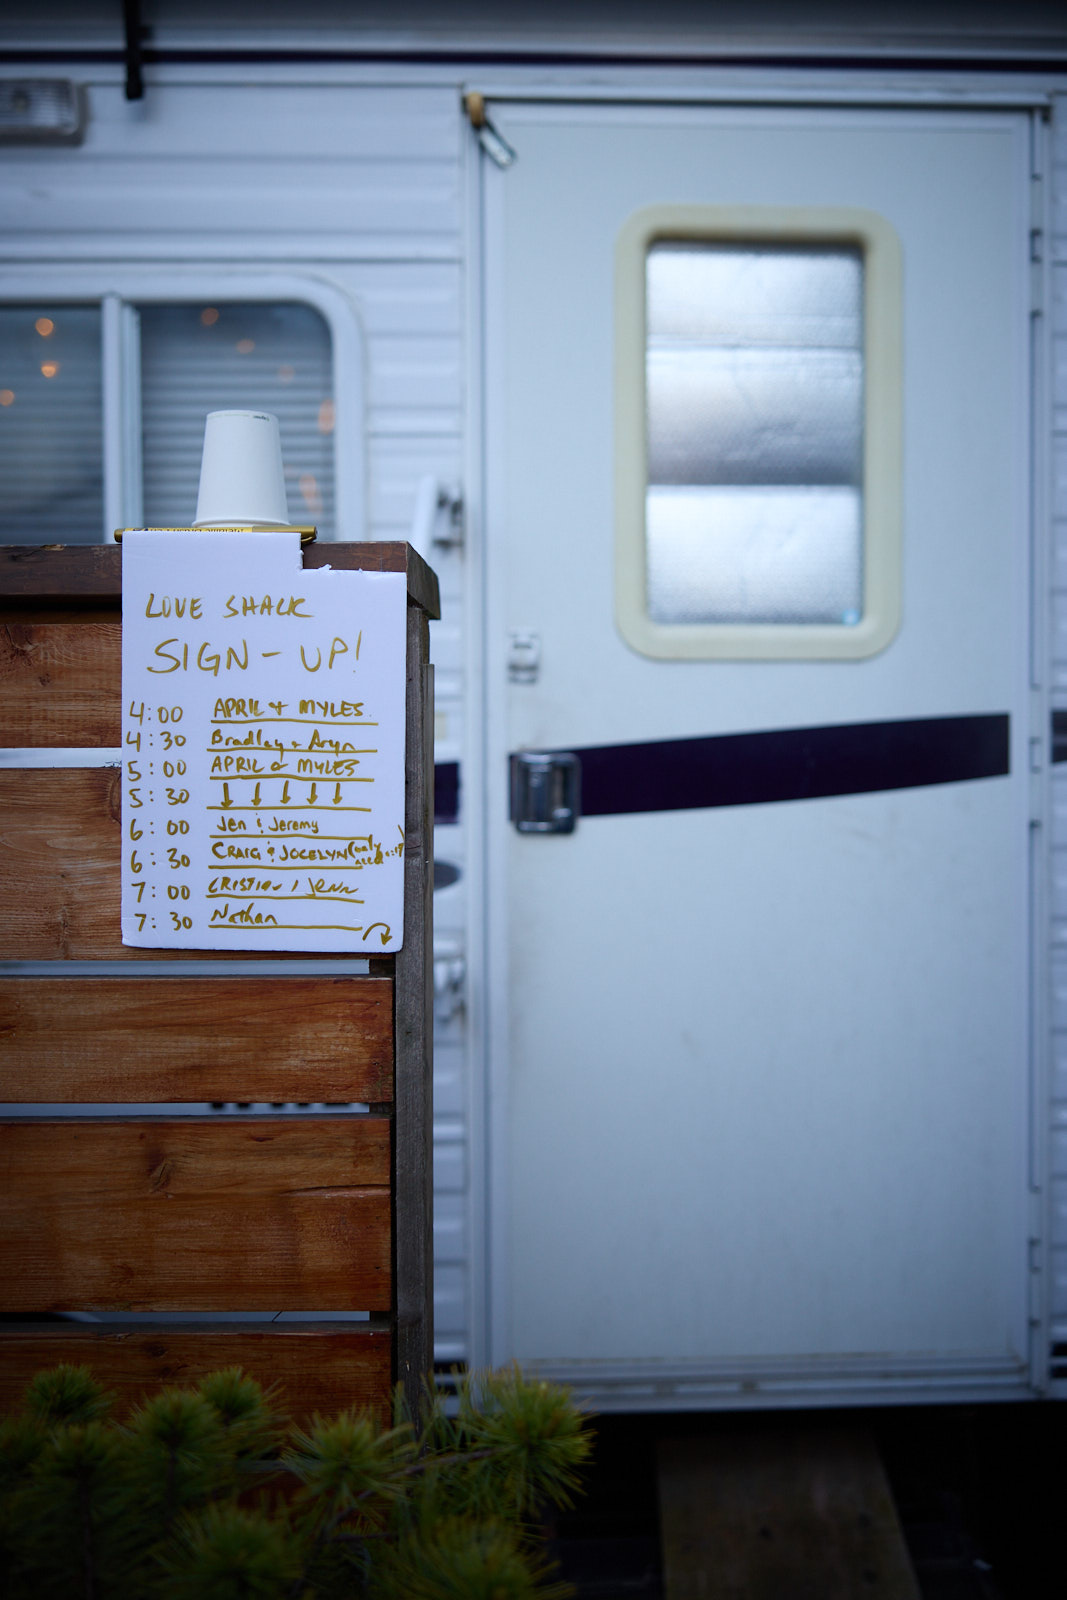 LOVE SHACK
SIGN-UP!
4:00 APRIL + MYLES
4:30 Bradley + Aryn
5:00 APRIL & MYLES
5:30 ↓ ↓ ↓ ↓ ↓
6:00 Jen & Jeremy
6:30 CRAIG & JOCELYN (only need
7:00 CRISTIAN / JENN
7:30 Nathan